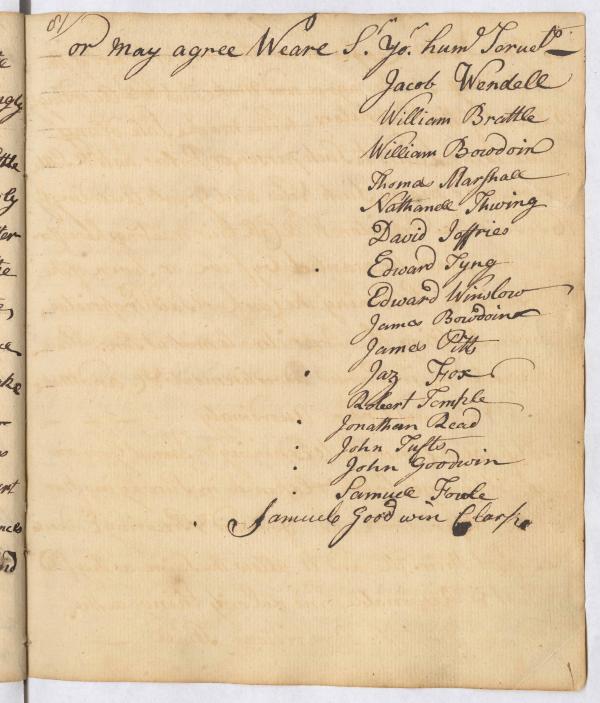 or may agree Weare Sr. Yor. humd Servets
Jacob Wendell
William Brattle
William Bowdoin
Thomas Marshall
Nathanell Thwing
David Joffries
Edward Tyng
Edward Winslow
James Bowdoin
James Pitts
Jaz Fox
Robert Temple
Jonathan Read
John Tufts
John Goodwin
Samuel Fowle
Samuel Goodwin Clark